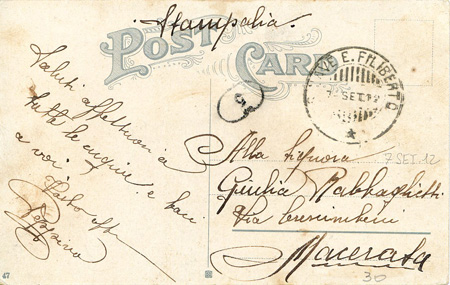 Stampalia.
POST CARD
NAVE E. FILIBERTO
7 SET 12
5
Saluti affettuosi a
tutte le cugine e baci
a voi.
Peppino
Alla Signora
7 SET. 12
Giulia
Via Crescimbeni
Macerata
30
47